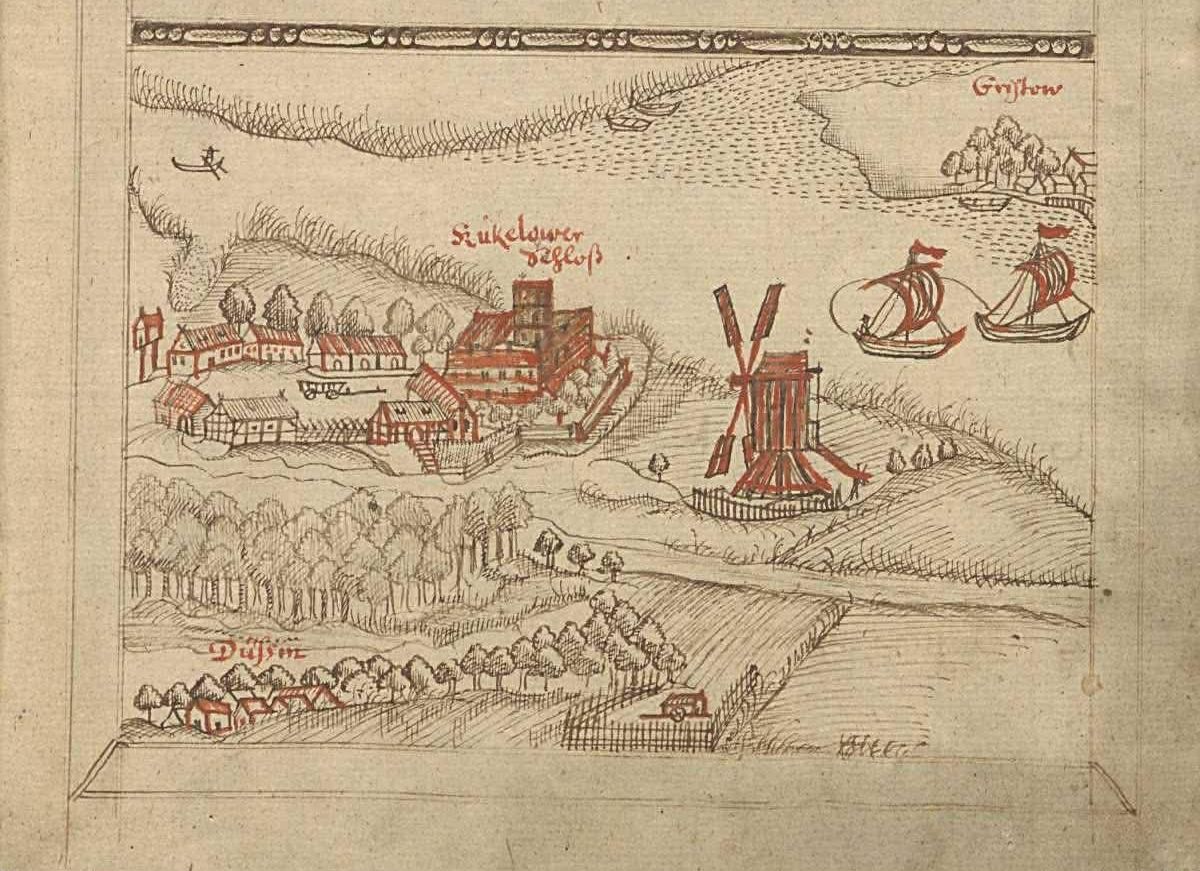 Gristow
Kükelower
Schloß
Düssin